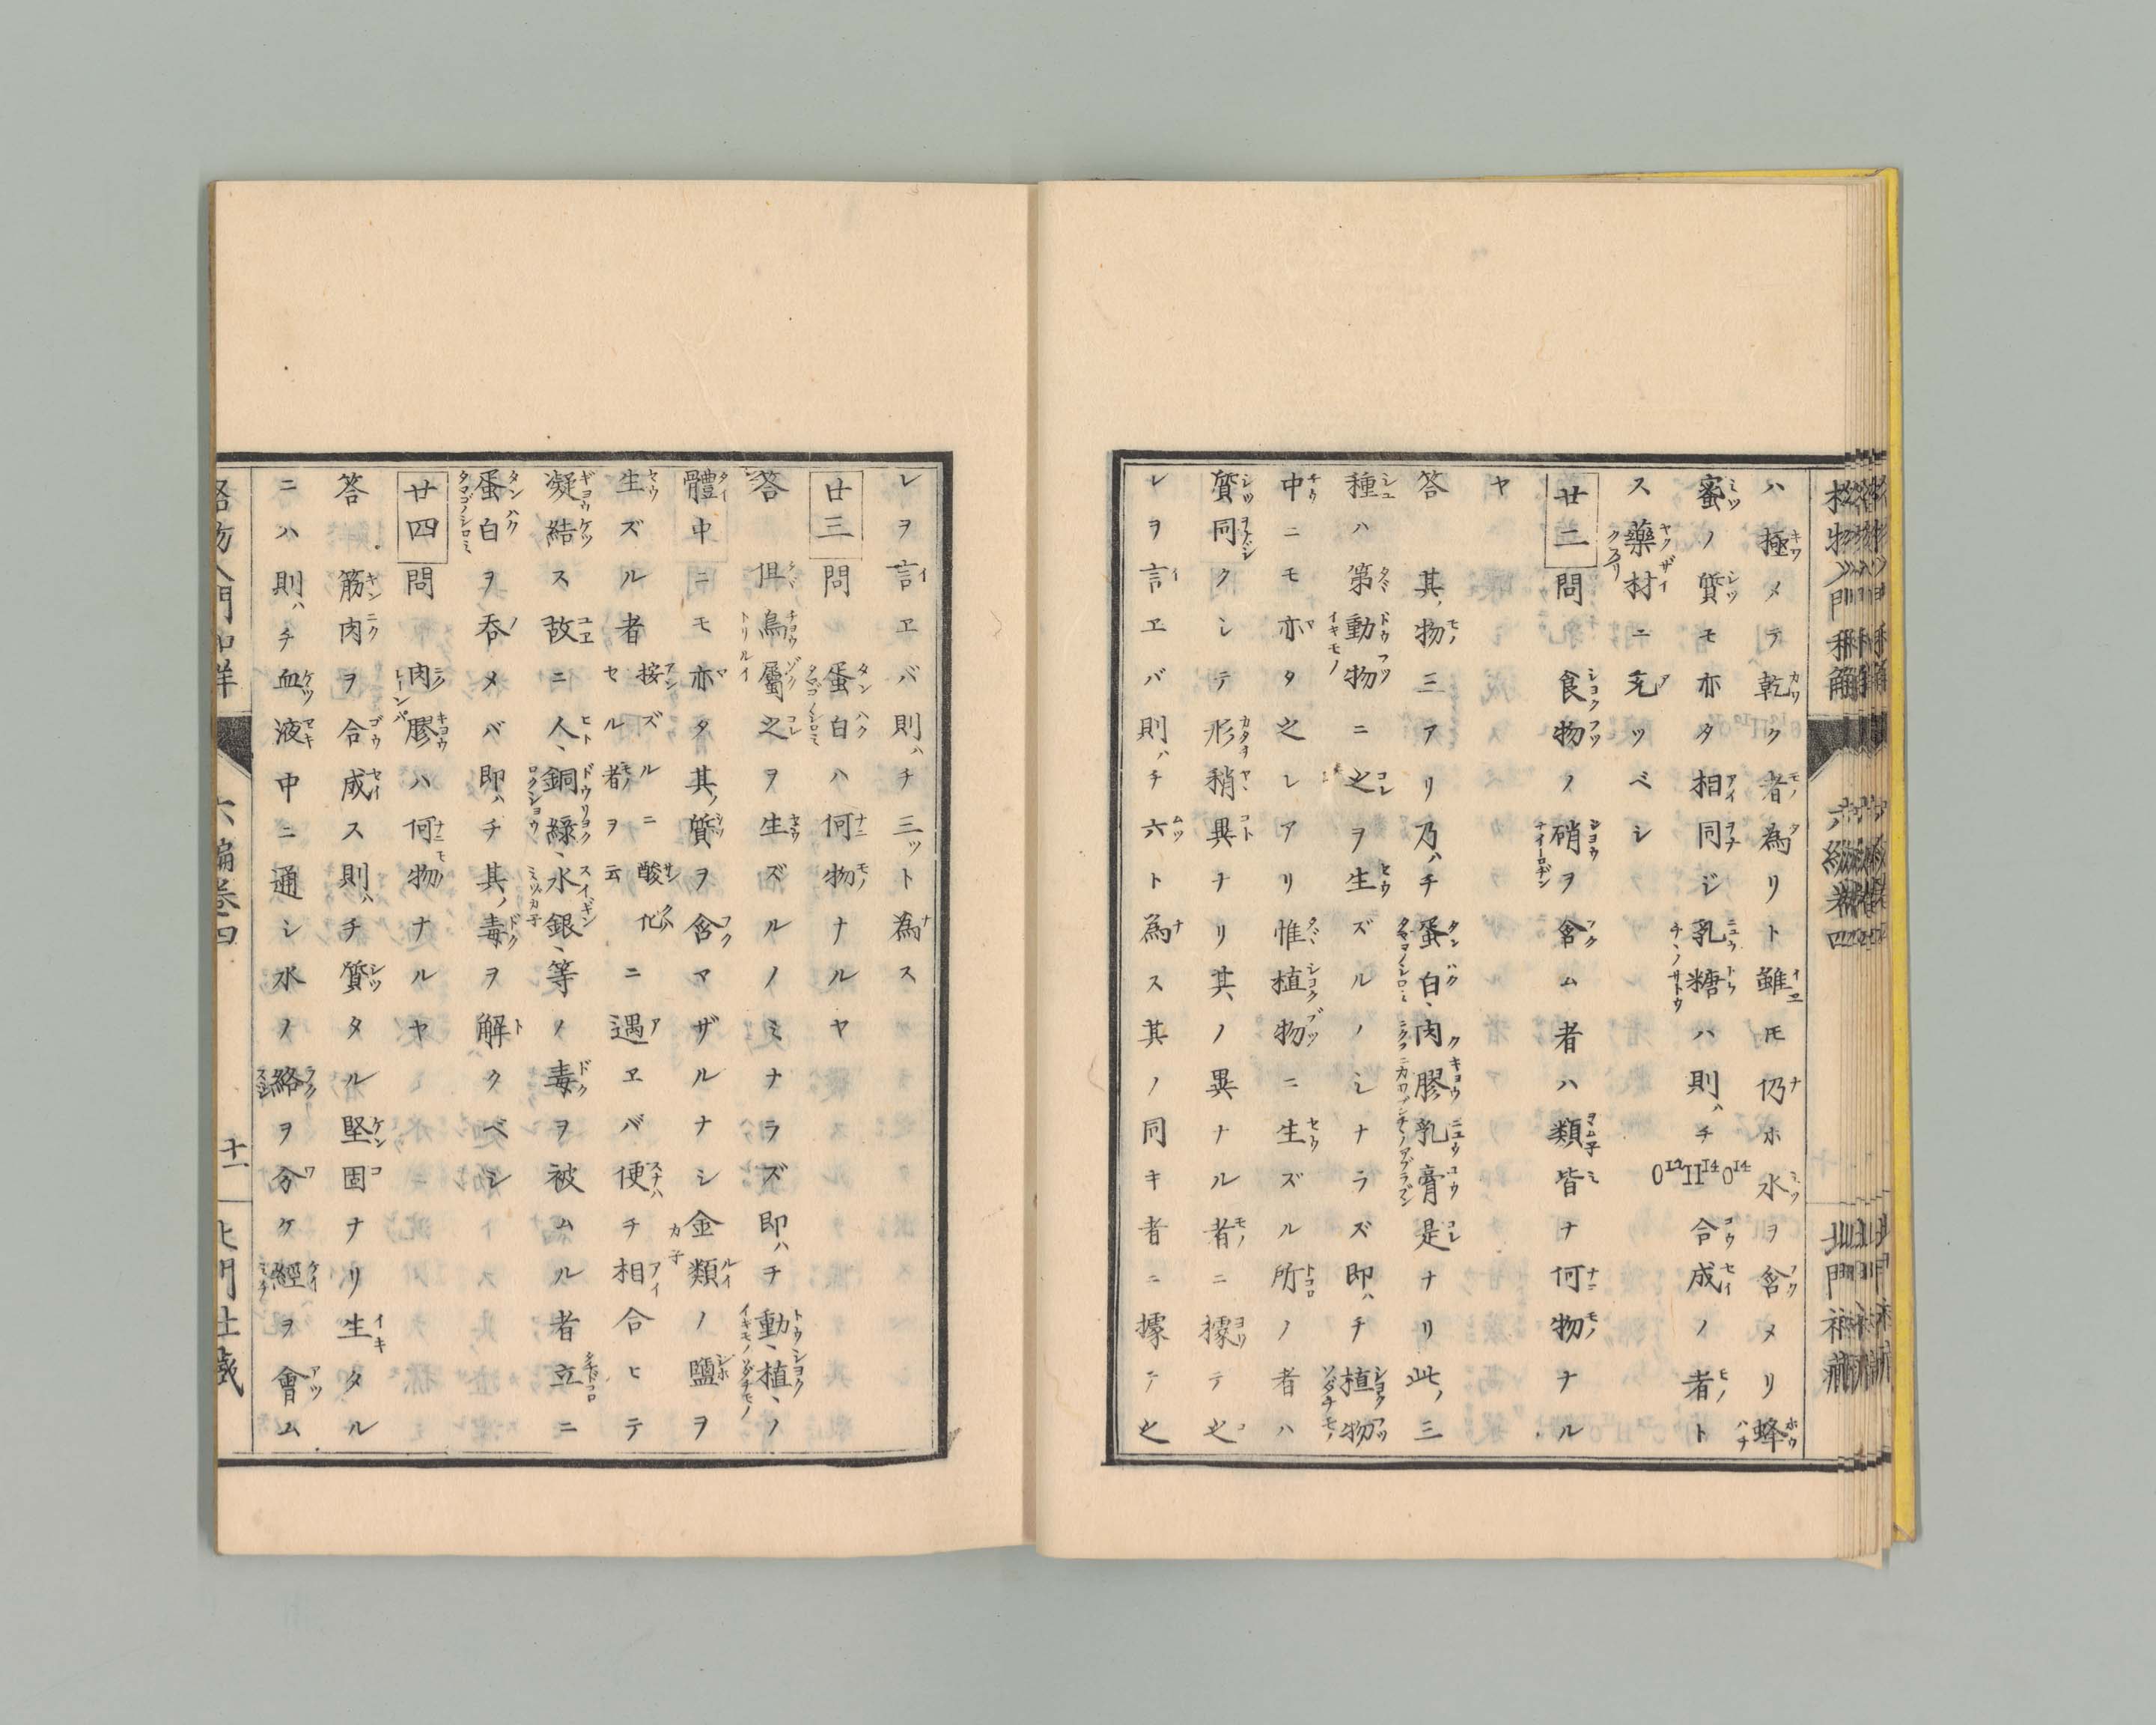 ハ極メテ乾ク者為リト雖モ仍ホ水ヲ含メリ蜂
蜜ノ質モ亦タ相同ジ乳糖ハ則チC¹²H¹⁴O¹⁴合成ノ者ト
ス藥材ニ充ツベシ
廿二問 食物ノ硝ヲ含ム者ハ類皆ナ何物ナル
ヤ
答 其ノ物三アリ乃チ蛋白、肉膠、乳膏是ナリ此ノ三
種ハ第動物ニ之ヲ生ズルノミナラズ即チ植物
中ニモ亦タ之レアリ惟植物ニ生ズル所ノ者ハ
質同クシテ形稍異ナリ其ノ異ナル者ニ據テ之
レヲ言エバ則チ六ト為ス其ノ同キ者ニ據テ之
レヲ言エバ則チ三ット為ス
廿三問 蛋白ハ何物ナルヤ
答 但鳥屬之ヲ生ズルノミナラズ即チ動、植、ノ
體中ニモ亦タ其ノ質ヲ含マザルナシ金類ノ鹽ヲ
生ズル者按ズルニ酸化セル者ヲ云ニ遇エバ便チ相合ヒテ
凝結ス故ニ人、銅綠、水銀、等ノ毒ヲ被ムル者立ニ
蛋白ヲ呑メバ即チ其ノ毒ヲ解クベシ
廿四問 肉膠ハ何物ナルヤ
答 筋肉ヲ合成ス則チ質タル堅固ナリ生タル
ニハ則チ血液中ニ通シ水ノ絡ヲ分ケ經ヲ會ム
格物入門和解 六編卷四 十一 北門社藏